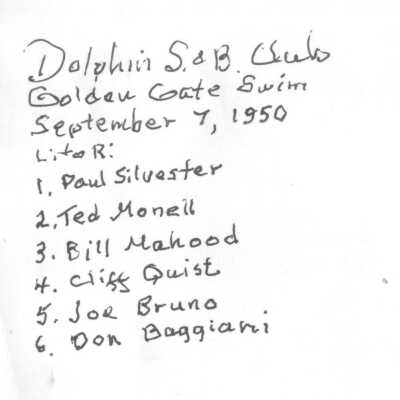 Dolphin S. & B. Club
Golden Gate Swim
September 7, 1950
L to R:
1. Paul Silvester
2. Ted Monell
3. Bill Mahood
4. Cliff Quist
5. Joe Bruno
6. Don Baggiani